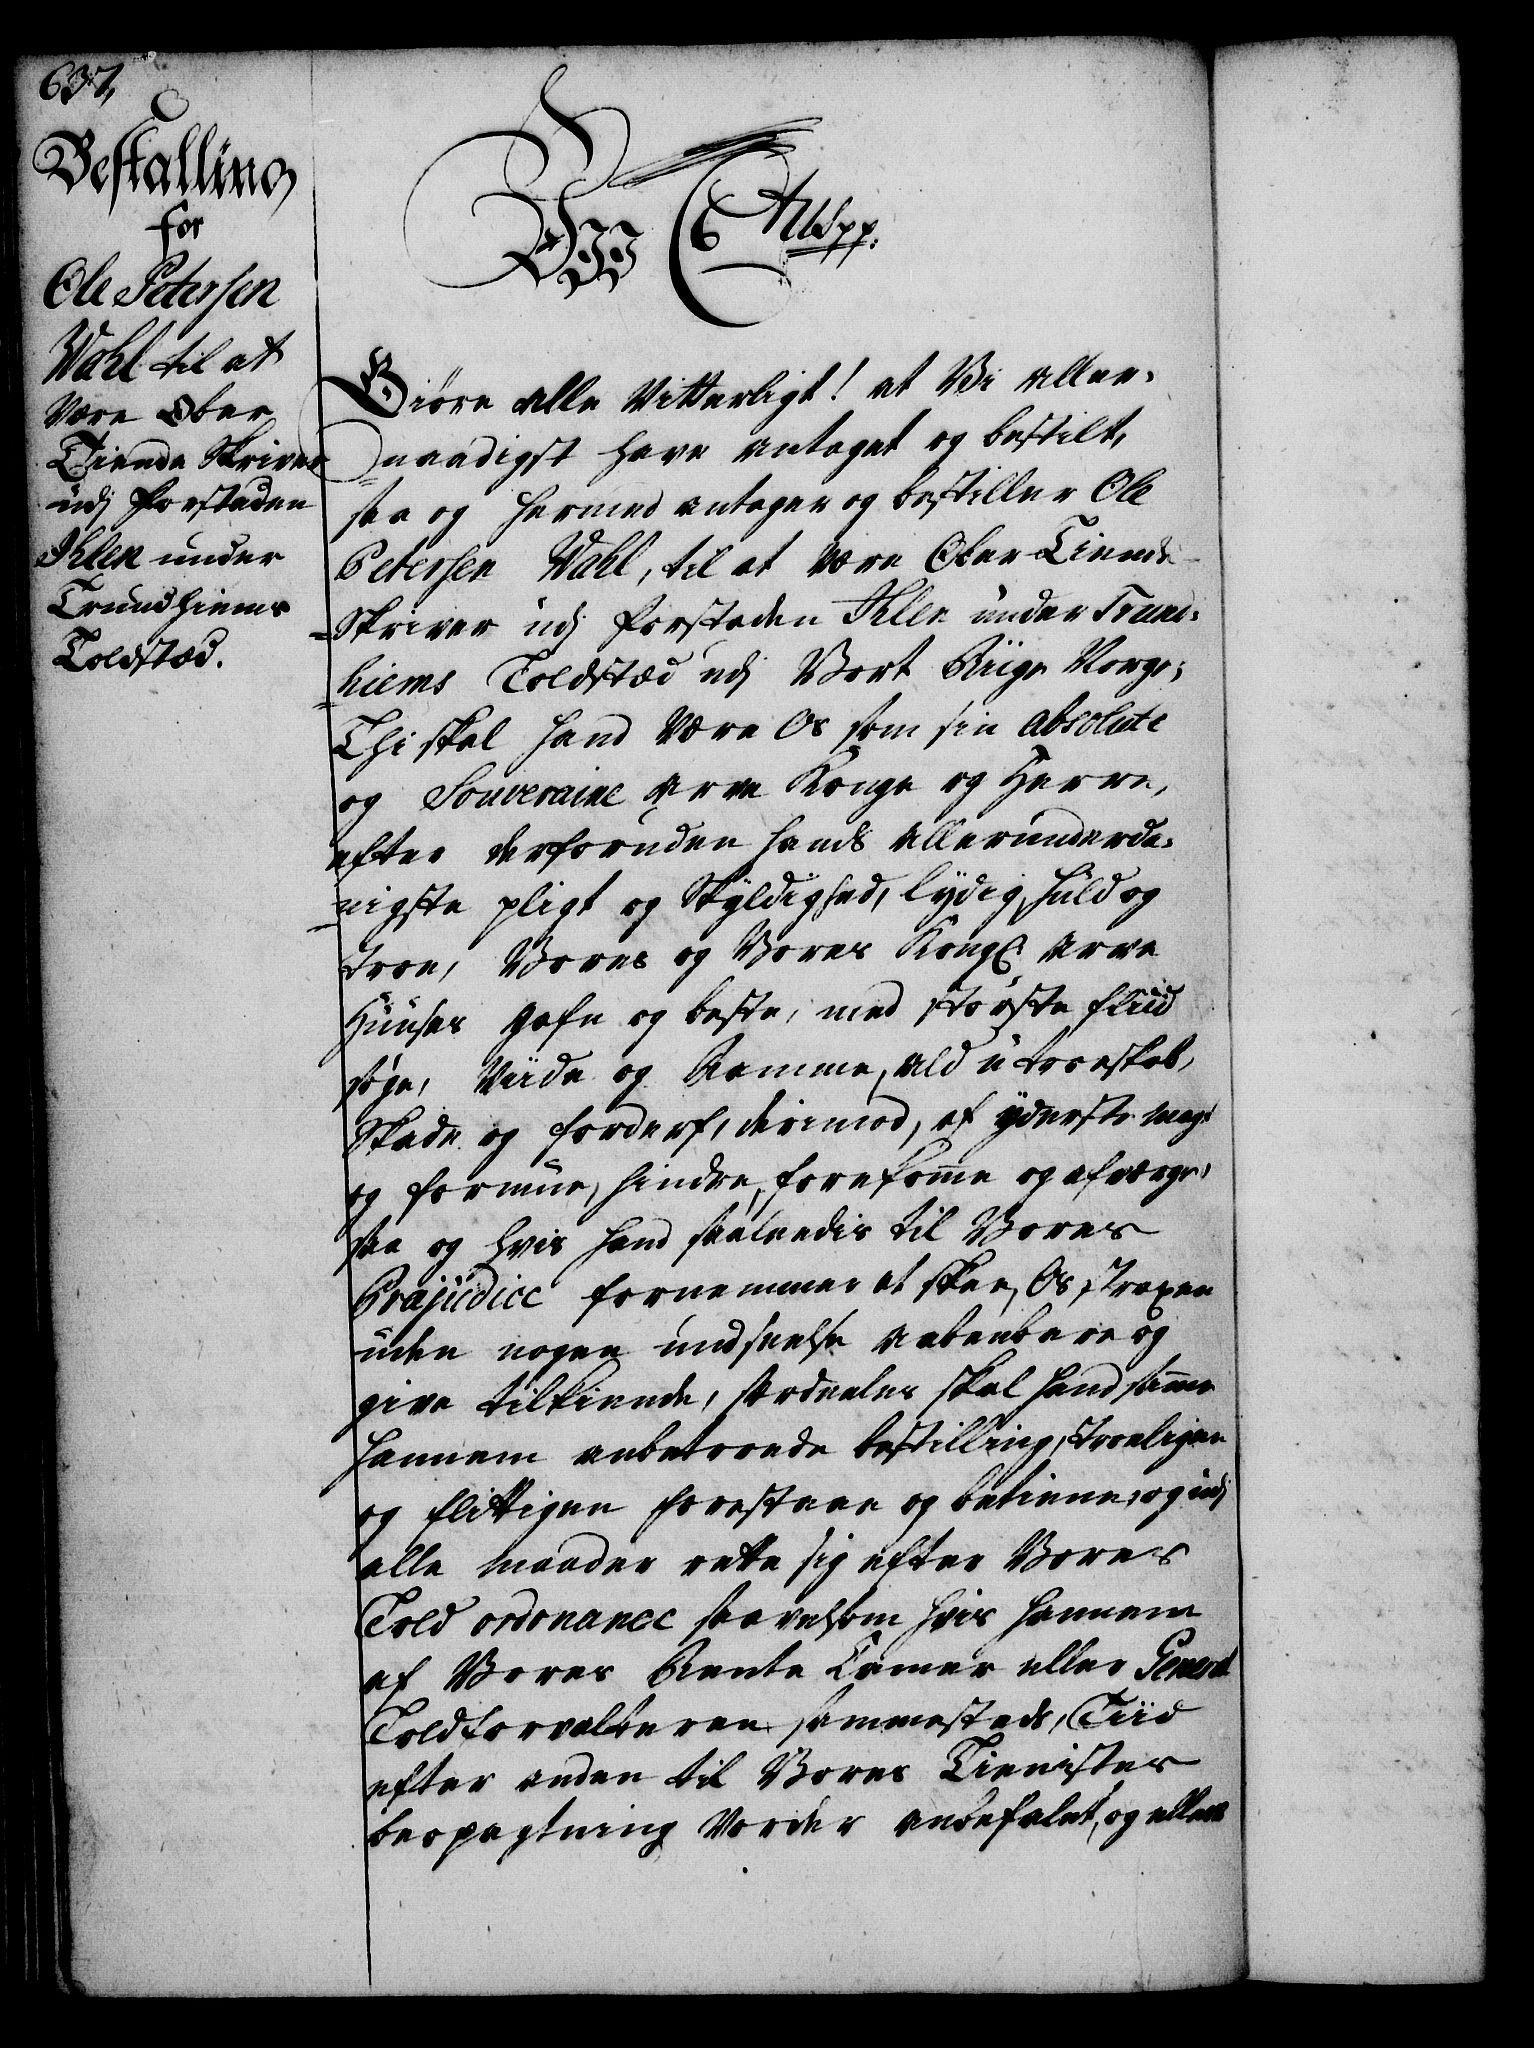 637,
Bestalling
for
Ole Petersen
Wahl til at
være Ober
Tiende Skriver
udj Forstaden
Ihlen under
Trundhiems
Toldstæd.
Wii C 6 Alt spp.
Giöre alle Vitterligt! at Vi aller-
naadigst have antaget og bestilt,
saa og hermed antager og bestiller Ole
Petersen Wahl, til at være Ober Tiende
Skriver udj Forstaden Ihlen under Trund-
hiems Toldstæd udj Vort Riige Norge;
Thi skal hand være Os som sin absolute
og Souveraine Arve Konge og Herre,
efter derforuden hands allerunderda-
nigste pligt og Skyldighed, lydig, huld og
troe, Vores og Vores Kongl. Arve
Huuses gafn og beste, med störste fliid
söge, viide og ramme, ald utroeskab,
Skade og forderf, derimod, af yderste magt
og formue, hindre, forekomme og afværge,
saa og hvis hand saaledis til Vores
Præjudice fornemmer at skee, Os straxen
uden nogen undseelse aabenbare og
give tilkiende, særdeeles skal hand samme
hannem anbetroede bestilling, troeligen
og flittigen forestaae og betiene, og udj
alle maader rette sig efter Vores
Told ordonance saavelsom hvis hannem
af Vores Rente Camer eller General
Toldforvalteren sammesteds, Tiid
efter anden til Vores Tienistes
beopagtning vorder anbefalet, og ellers